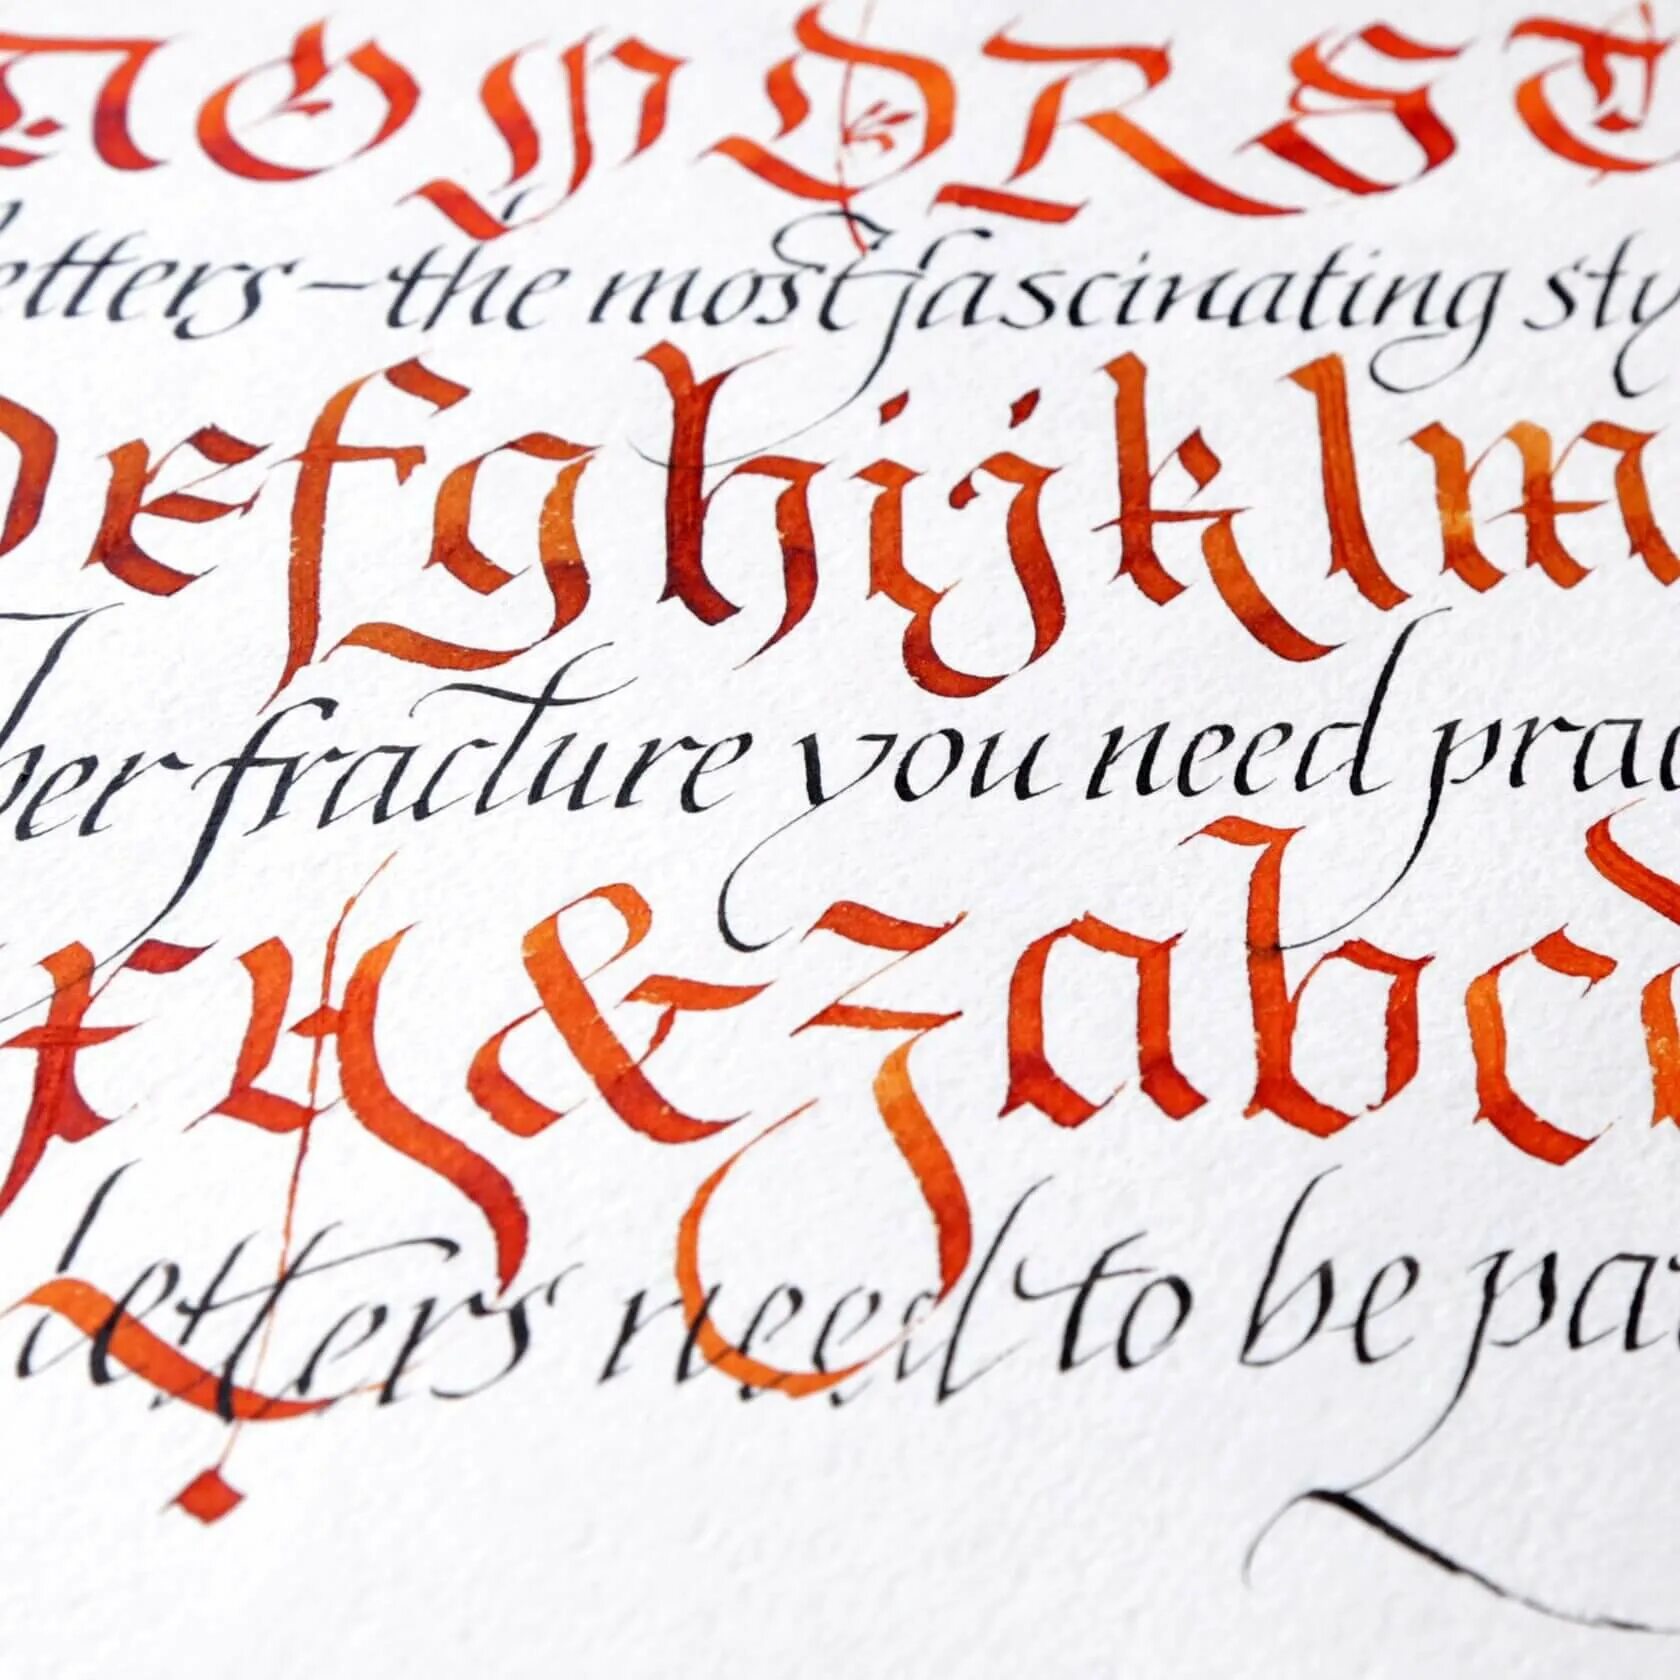 N O P Q R S T
letters – the most fascinating sty
d e f g h i j k l m
her fracture you need prac
x y & z a b c d
letters need to be pa